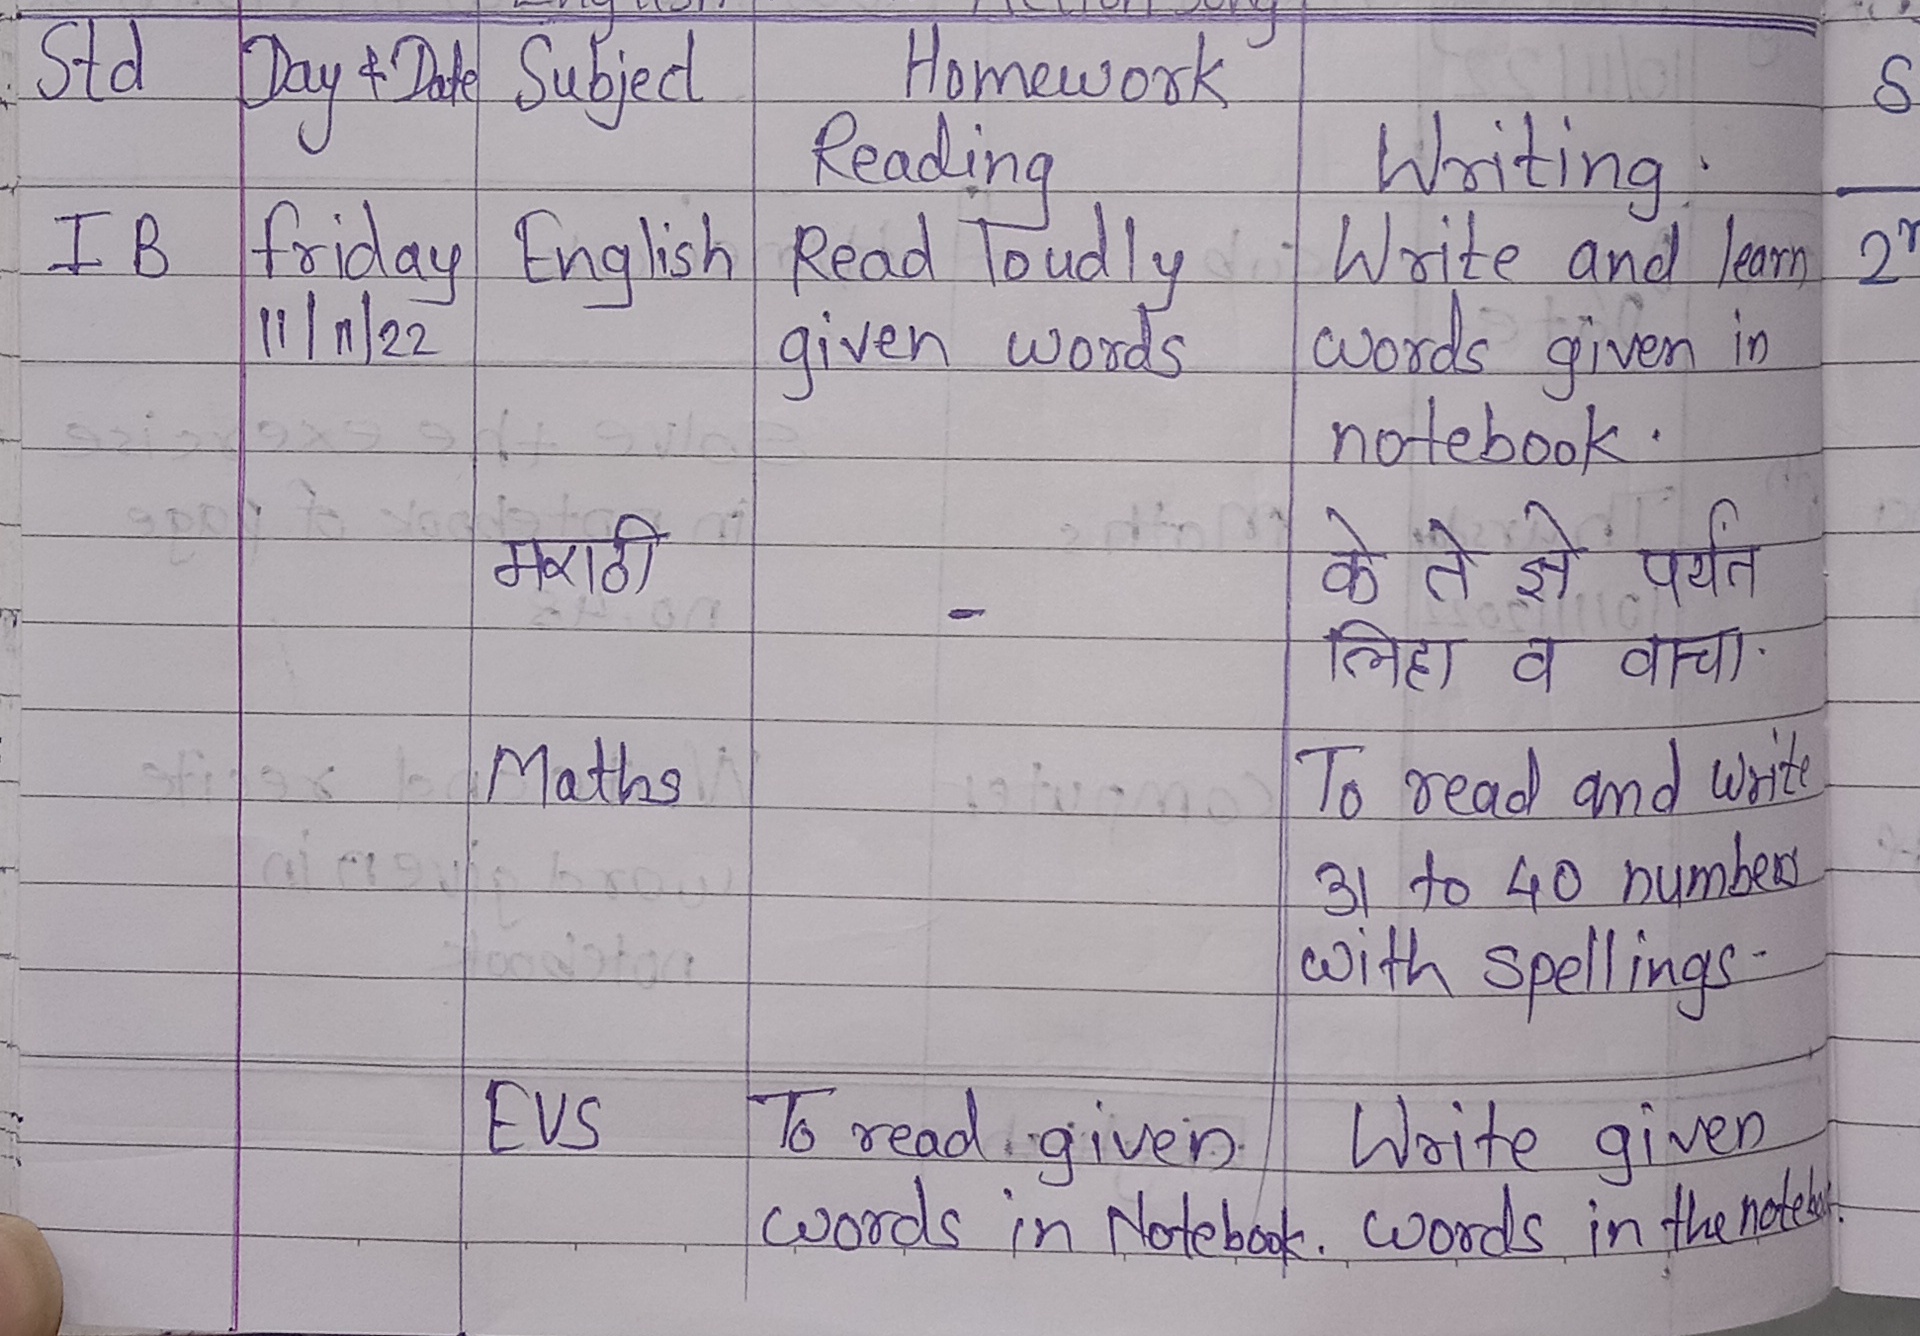 Std Day & Date Subject Homework
Reading Writing.
I B friday English Read loudly Write and learn
11/11/22 given words words given in
notebook.
मराठी - के ते ज्ञे पर्यंत
लिहा व वाचा.
Maths To read and write
31 to 40 numbers
with spellings-
EVS To read given Write given
words in Notebook. words in the notebook.